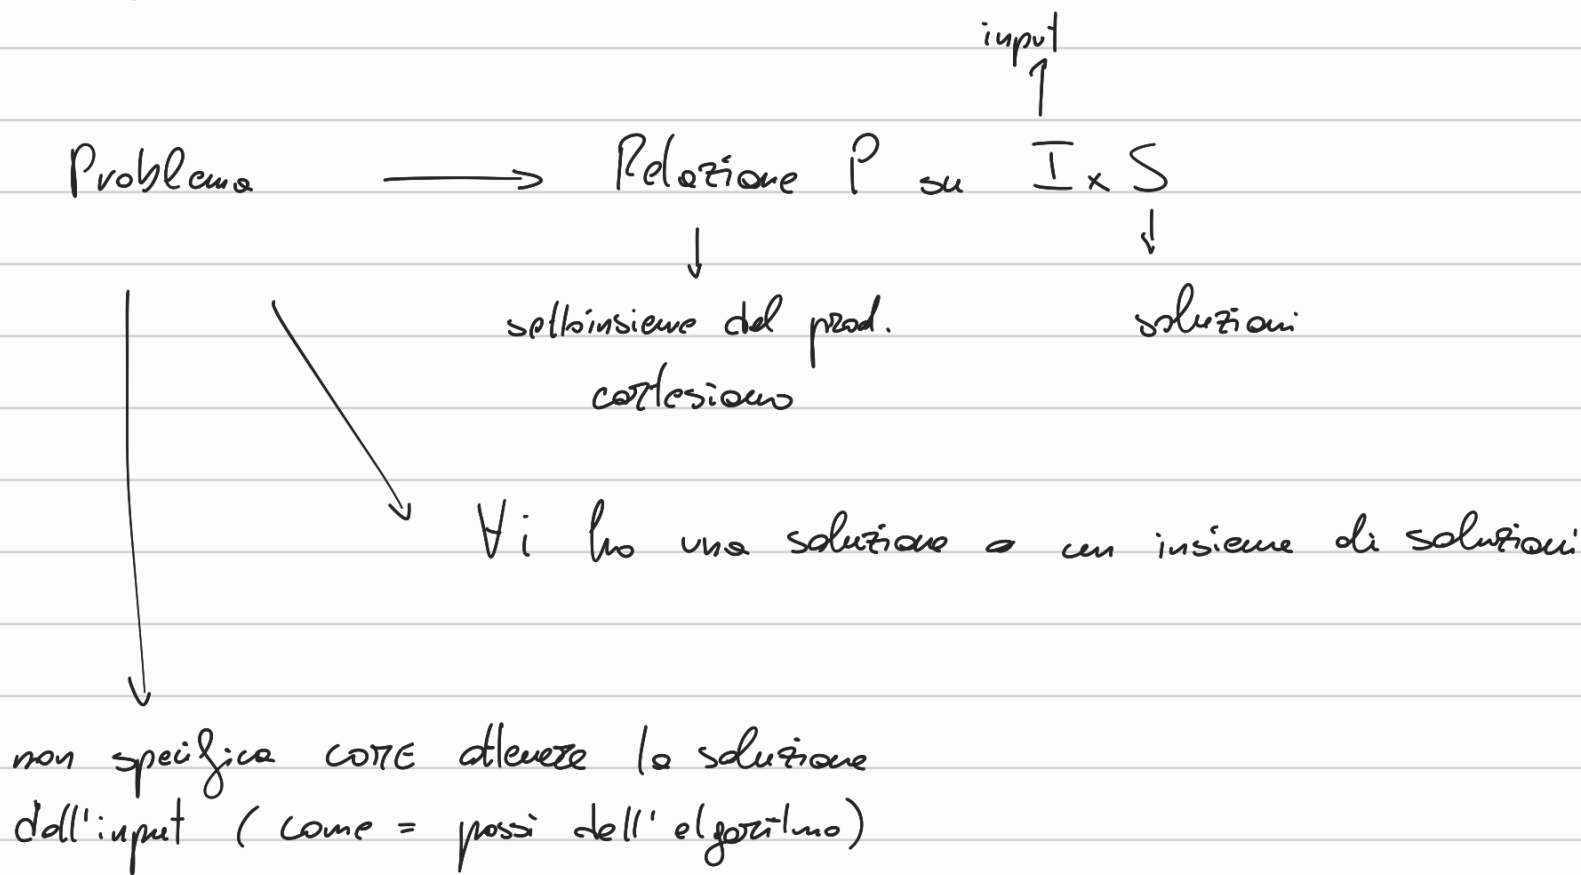 input
Problema → Relazione P su I x S
sottoinsieme del prod. soluzioni
cartesiano
∀i ho una soluzione o un insieme di soluzioni
non specifica COME ottenere la soluzione
dall'input ( come = passi dell'algoritmo)